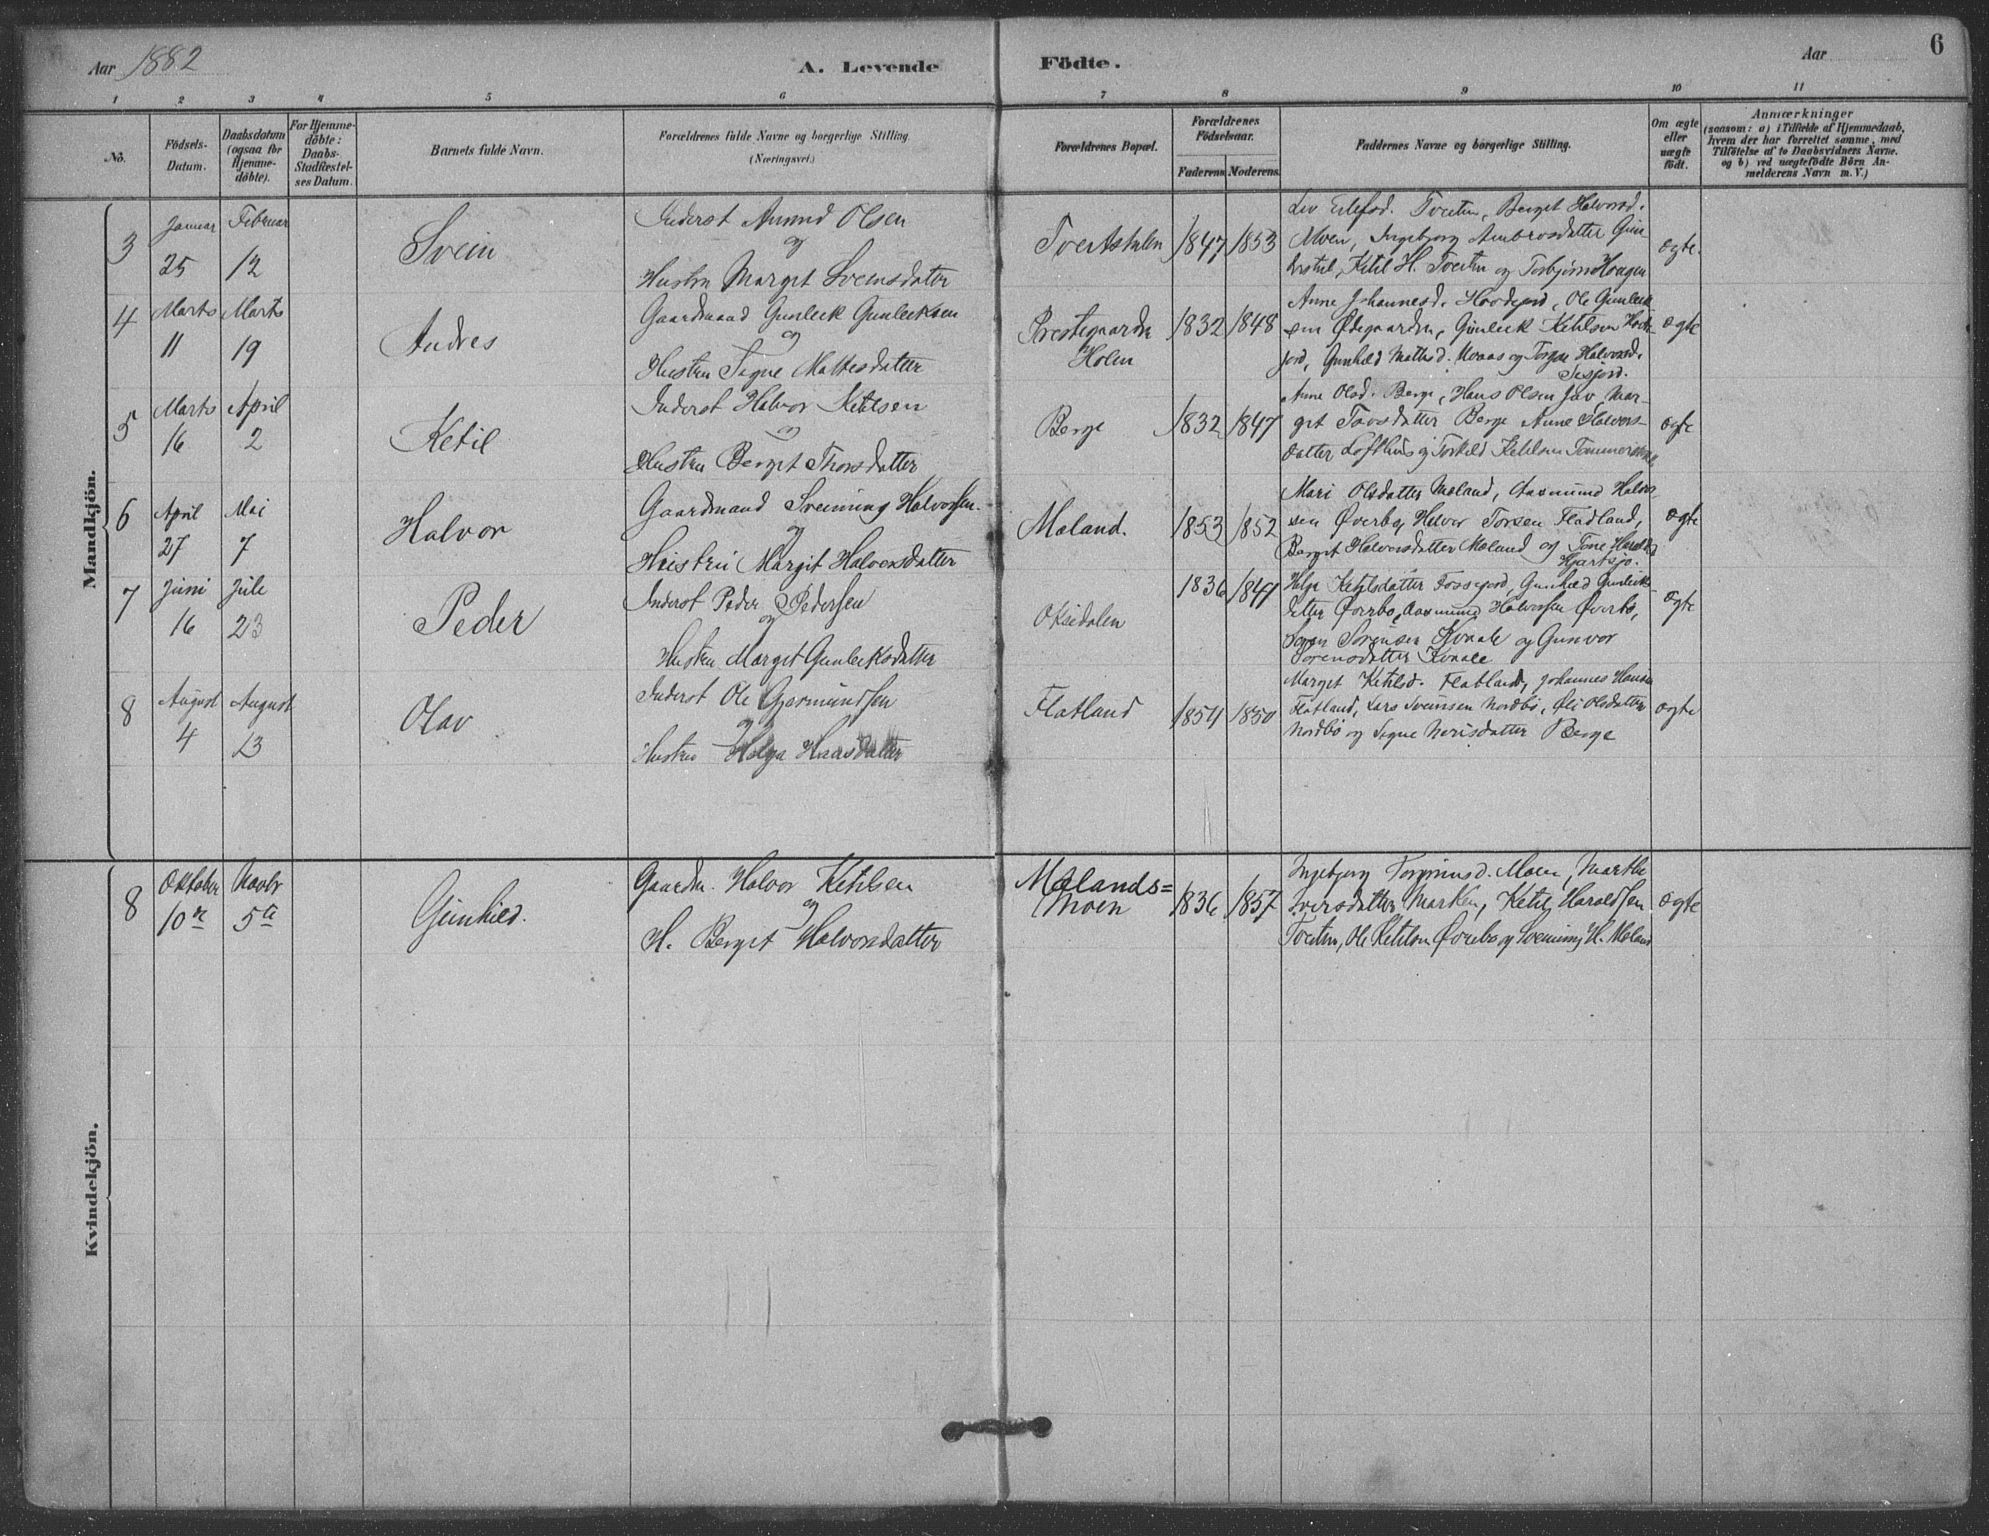 Aar 1882
A. Levende Födte.
Aar
6
1 2 3 4 5 6 7 8 9 10 11
No.
Födsels-Datum.
Daabsdatum (ogsaa for Hjemme-döbte).
For Hjemme-döbte: Daabs-Stadfæstel-ses Datum.
Barnets fulde Navn.
Forældrenes fulde Navne og borgerlige Stilling. (Næringsvei.)
Forældrenes Bopæl.
Forældrenes Födselsaar.
Faderens. Moderens.
Faddernes Navne og borgerlige Stilling.
Om ægte eller uægte födt.
Anmærkninger
(saasom: a) i Tilfælde af Hjemmedaab,
hvem der har forrettet samme, med
Tilföielse af to Daabsvidners Navne.
og b) ved uægtefödte Börn An-
melderens Navn m. V.)
Mandkjön.
3
Januar 25
Februar 12
Svein
Inderst Amund Olsen
og
Hustru Marget Sveinsdatter
1847 1853
Liv Eilefsd. Tveiten, Berget Halvorsd.
Moen, Ingebjørg Ambrosdatter
Ketil H. Tveiten og Torbjørn Haagen
ægte.
4
Marts 11
Marts 19
Andres
Gaardmand Gunleik Gunleiksen
og
Hustru Signe Mattesdatter
Prestegaarden
Holen
1832 1848
Anne Johannesd. Ole Gunleik
sen Ødegaarden, Gunleik Ketilsen
jord, Gunhild Mathisd. Moaas og Torgne Halvorsd.
ægte
5
Marts 16
April 2
Ketil
Inderst Halvor Ketilsen
og
Hustru Berget Thorsdatter
Berge
1832 1847
Anne Olsd. Berge, Hans Olsen Jav, Mar-
get Tovsdatter Berge Anne Halvors-
datter Lofthus og Torkild Ketilsen
ægte
6
April 27
Mai 7
Halvor
Gaardmand Svenning Halvorsen
og
Hustru Margit Halvorsdatter
Moland.
1853 1852
Mari Olsdatter Moland, Aasmund Halvor-
sen Øverbø, Halvor Torsen Fladland,
Berget Halvorsdatter Moland og Tone
Hjartsjø.
ægte
7
Juni 16
Juli 23
Peder
Inderst Peder Pedersen
og
Hustru Marget Gunleiksdatter
Oksedalen
1836 1841
Helge Ketilsdatter Fossejord, Gunhild Gunleiks-
datter Øverbø, Aasmund Halvorsen Øverbø,
Søren Sørensen Kvaale og Gunvor
Sørensdatter Kvaale
ægte
8
August 4
August 13
Olav
Inderst Ole Gjermundsen
og
Hustru Helga Hansdatter
Flatland
1854 1850
Marget Ketilsd. Flatland, Johannes Hansen
Flatland, Lars Sveinsen Nordbø, Olsdatter
Nordbø og Signe Nerisdatter Berge
ægte
Kvindekjön.
8
Oktober 10de
Novbr 5te
Gunhild.
Gaardm. Halvor Ketilsen
og
H. Berget Halvorsdatter
Molands=
moen
1836 1857
Ingebjørg Torgrimsd. Moen, Marthe
Iversdatter Marken, Ketil Haraldsen
Tveiten, Ole Ketilsen Øverbø og Svenning H. Moland
ægte